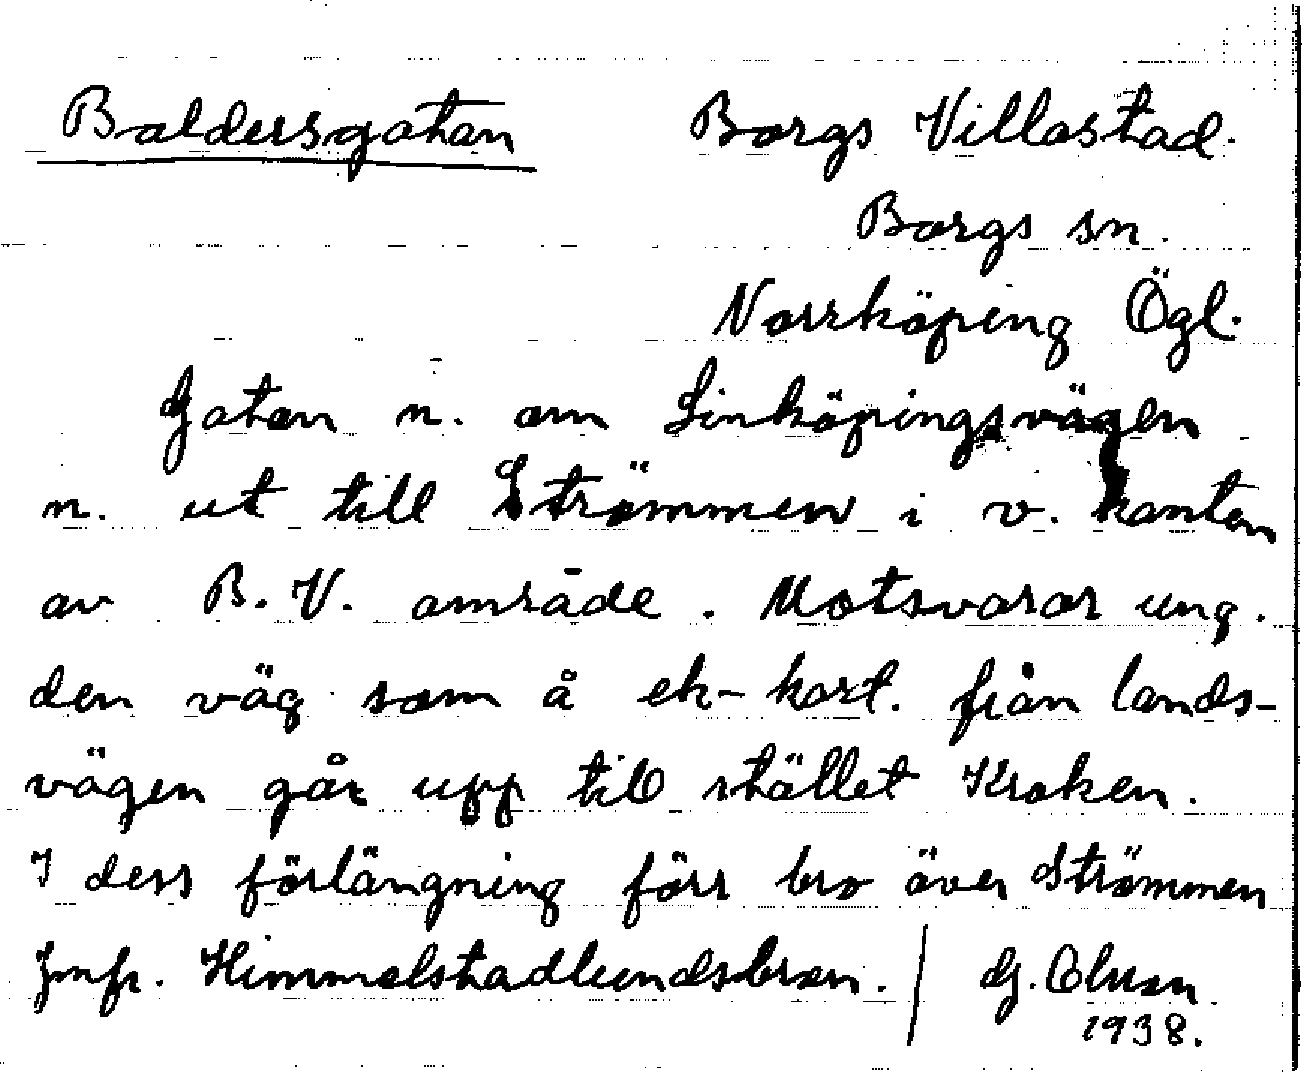 Baldersgatan Borgs Villastad.
Borgs sn.
Norrköping Ögl.
Gatan n. om Linköpingsvägen
n. ut till Strömmen i v. kanten
av B. V. område. Motsvarar ung.
den väg som å ek-kart. från lands-
vägen går upp till stället Kroken.
I dess förlängning förr bro över Strömmen
Jmfr. Himmelstadlundsbron. / G. Olsson
1938.